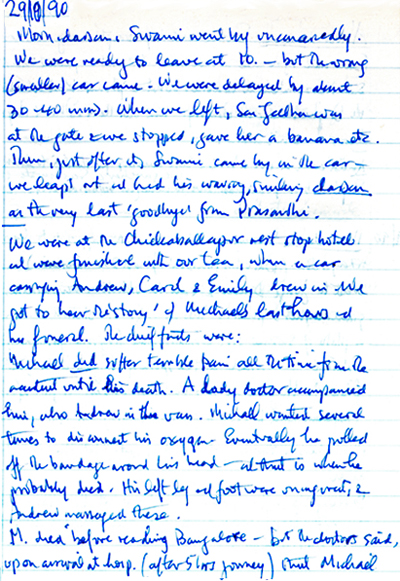 29/8/90
Morn. darsan. Swami went by unconcernedly.
We were ready to leave at 10. – but the wrong
(smaller) car came. We were delayed by about
30-40 mins. When we left, Sai Geetha was
at the gate & we stopped, gave her a banana etc.
Then, just after it, Swami came by in the car –
we leapt out and had his waving, smiling darsan
as the very last 'goodbye' from Prasanthi.
We were at the Chickaballapur rest stop hotel
and were finished with our tea, when a car
carrying Andrew, Carol & Emily drew in. We
got to hear the 'story' of Michaels last hours and
his funeral. The chief points were:
Michael did suffer terrible pain all the time from the
accident until his death. A lady doctor accompanied
him, also Andrew in the van. Michael wanted several
times to disconnect his oxygen. Eventually he pulled
off the bandage around his head – and that is when he
probably died. His left leg and foot were , &
Andrew massaged these.
M. died before reaching Bangalore – but the doctors said,
upon arrival at hosp. (after 5 hrs journey) that Michael